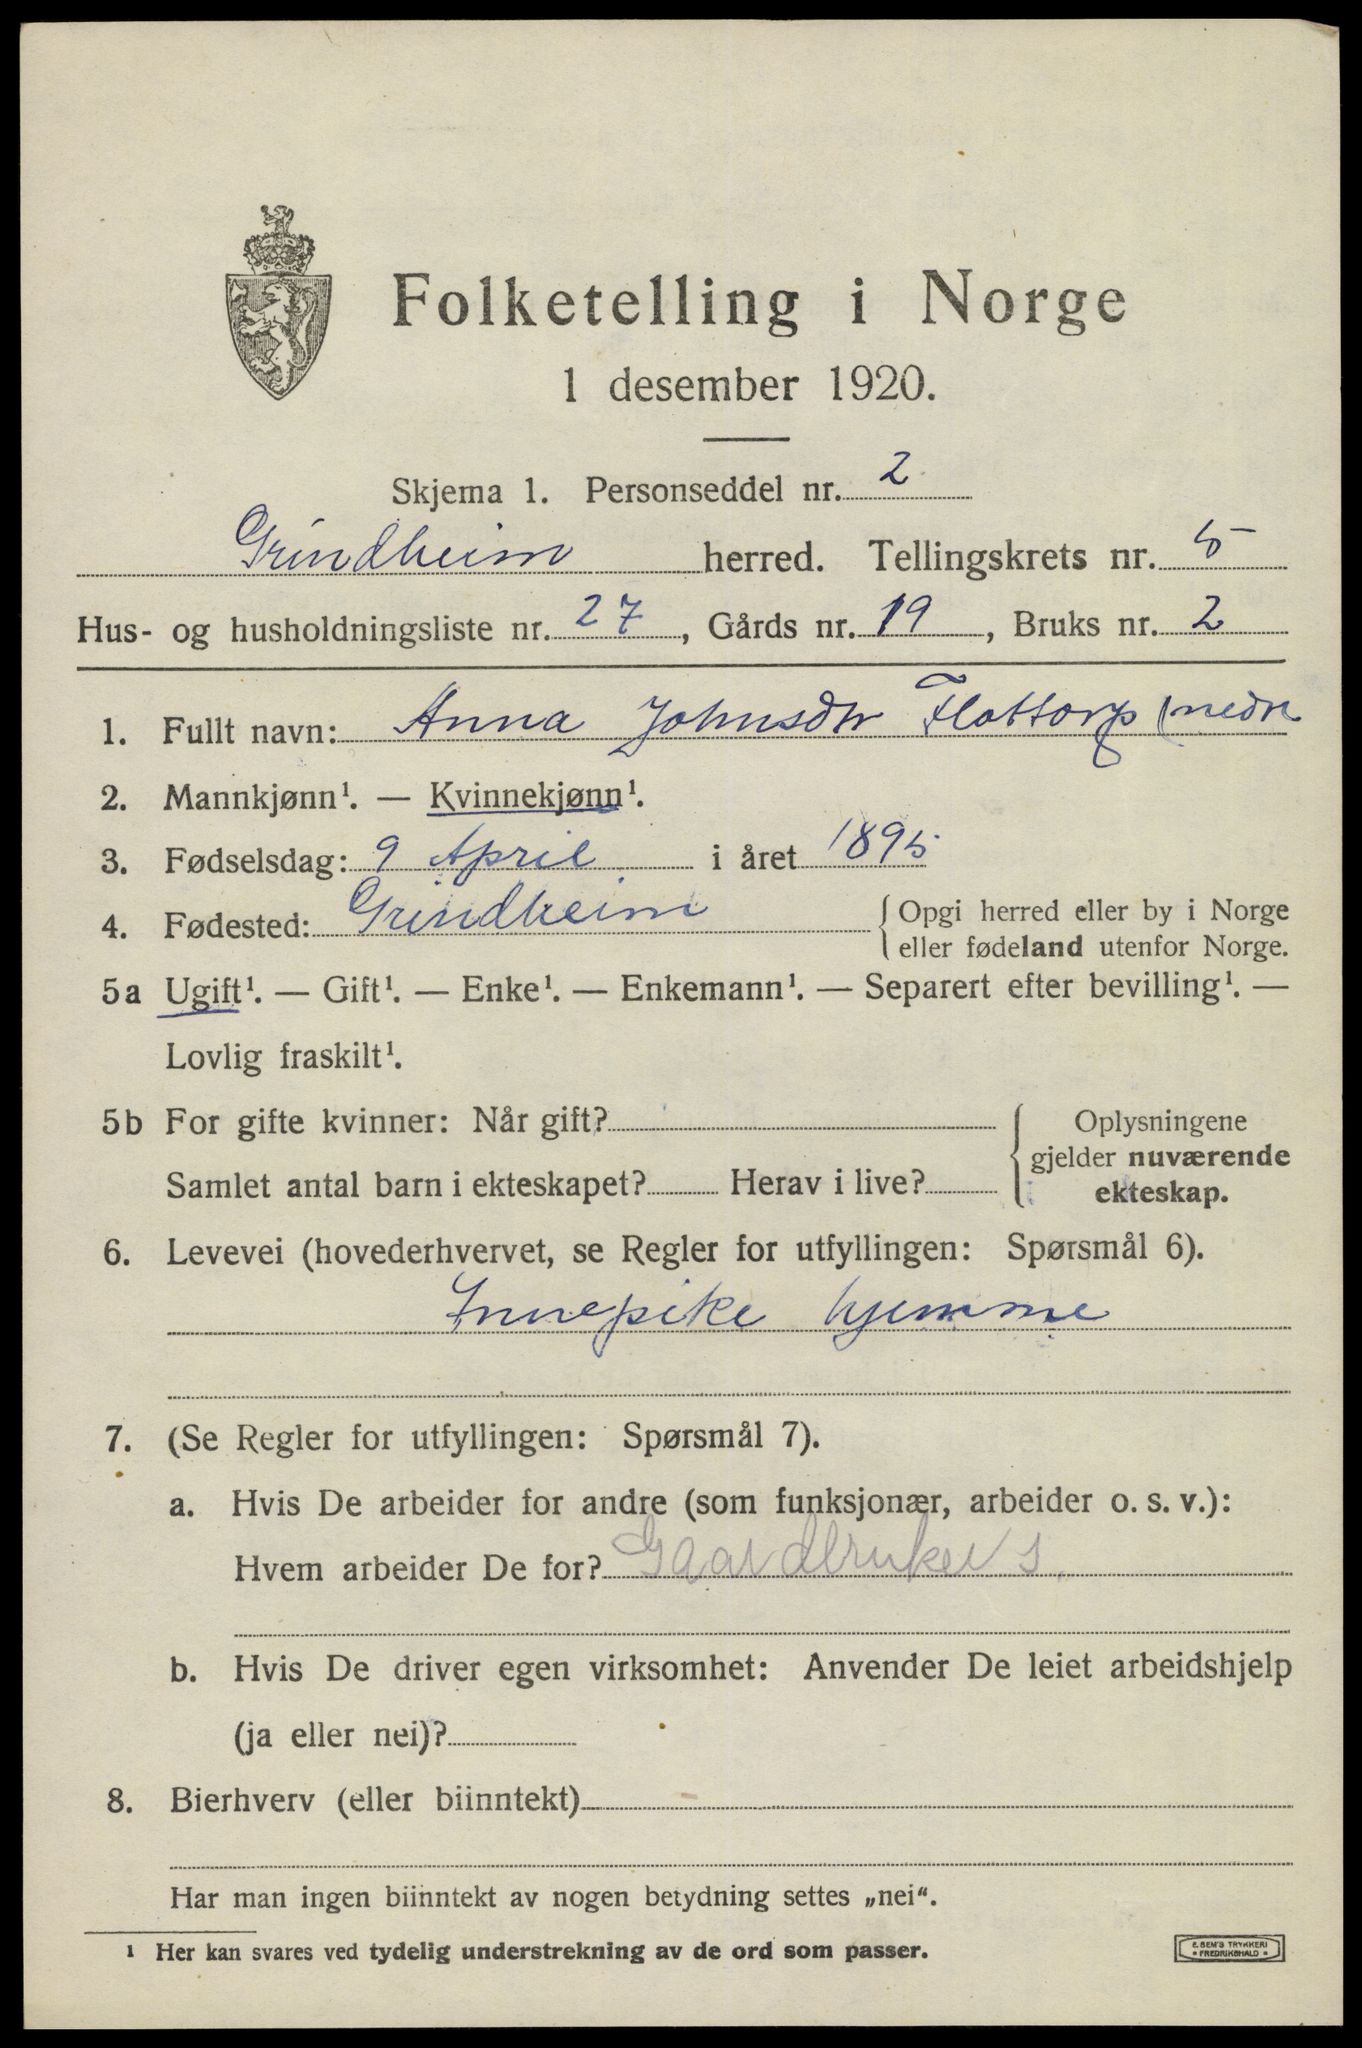 Folketelling i Norge
1 desember 1920.
Skjema 1. Personseddel nr. 2
Grindheim herred. Tellingskrets nr. 5
Hus- og husholdningsliste nr. 27, Gårds nr. 19, Bruks nr. 2
1. Fullt navn: Anna Johnsdtr Flottorp (nedre
2. Mannkjønn¹. — Kvinnekjønn¹.
3. Fødselsdag: 9 April i året 1895
4. Fødested: Grindheim { Opgi herred eller by i Norge
eller fødeland utenfor Norge.
5a Ugift¹. — Gift¹. — Enke¹. — Enkemann¹. — Separert efter bevilling¹. —
Lovlig fraskilt¹.
5b For gifte kvinner: Når gift?
Samlet antal barn i ekteskapet? Herav i live?
Oplysningene
gjelder nuværende
ekteskap.
6. Levevei (hovederhvervet, se Regler for utfyllingen: Spørsmål 6).
Innepike hjemme
7. (Se Regler for utfyllingen: Spørsmål 7).
a. Hvis De arbeider for andre (som funksjonær, arbeider o. s. v.):
Hvem arbeider De for? Gaardbruker s.
b. Hvis De driver egen virksomhet: Anvender De leiet arbeidshjelp
(ja eller nei)?
8. Bierhverv (eller biinntekt)
Har man ingen biinntekt av nogen betydning settes „nei“.
¹ Her kan svares ved tydelig understrekning av de ord som passer.
E. SEM'S TRYKKERI
• FREDRIKSHALD •